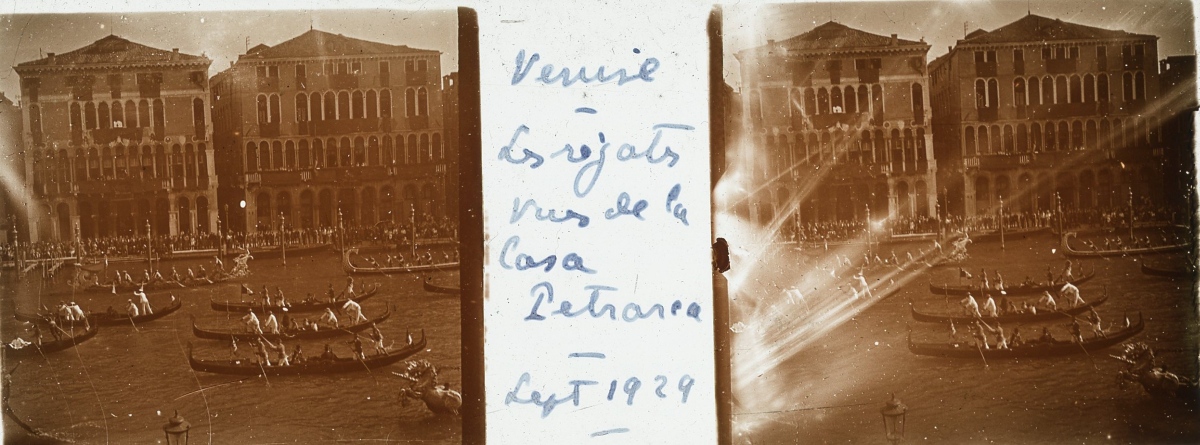 Venise
—
Les régates
vues de la
Casa
Petrarca
—
Sept 1929
—